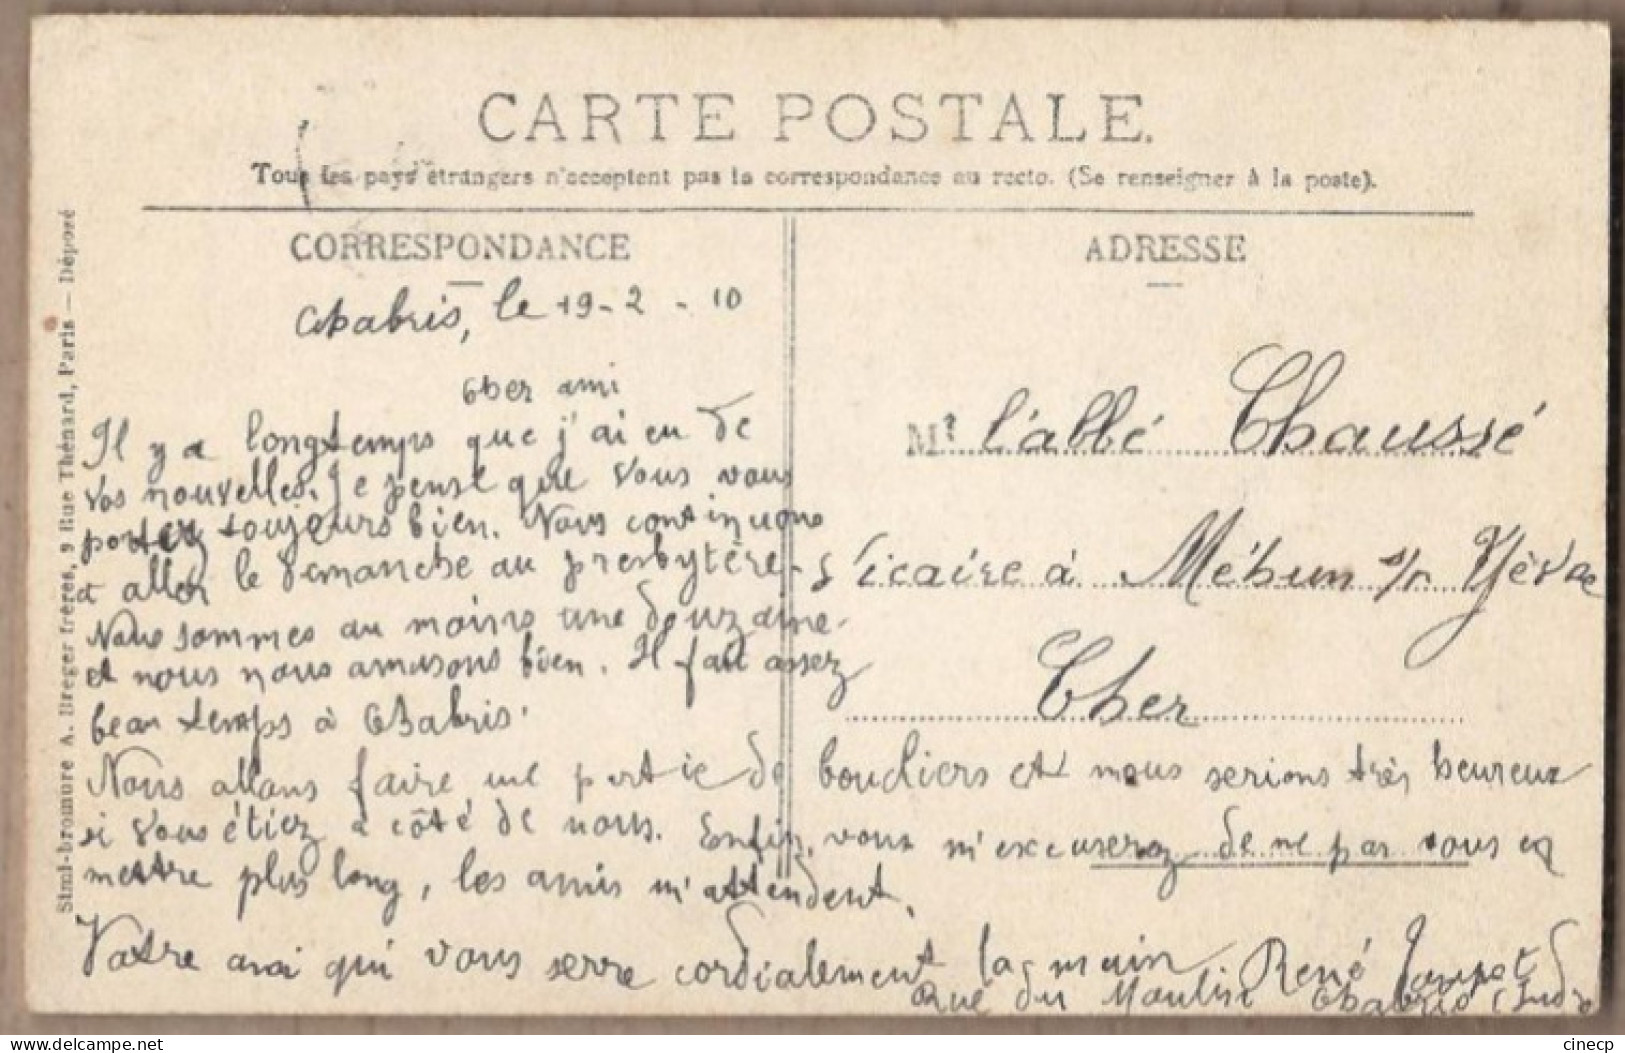 CARTE POSTALE.
Tous les pays étrangers n'acceptent pas la correspondance au recto. (Se renseigner à la poste).
CORRESPONDANCE
Chabris, le 19-2-10
Cher ami
Il y a longtemps que j'ai eu de
vos nouvelles. Je pense que vous vous
portez toujours bien. Nous continuons
à aller le Demanche au presbytère.
Nous sommes au moins une douzaine
et nous nous amusons bien. Il fait assez
beau temps à Chabris.
Nous allons faire une partie de boucliers et nous serions très heureux
si vous étiez à côté de nous. Enfin, vous m'excuserez de ne pas vous en
mettre plus long, les amis m'attendent.
Votre ami qui vous serre cordialement la main René
Rue du Moulin Chabris (Indre
ADRESSE
Mr l'abbé Chaussé
Vicaire à Méhun s/r Yèvre
Cher
Simi-bromure A. Breger frères, 9 Rue Thénard, Paris — Déposé
delcampe.net
cinecp